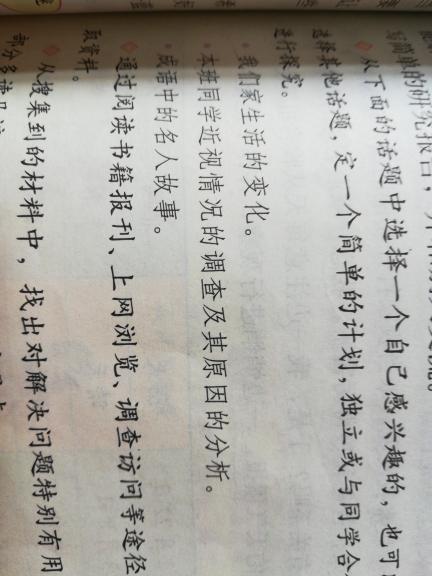 写简单的研究报告，
◇ 从下面的话题中选择一个自己感兴趣的，也可
选择其他话题，定一个简单的计划，独立或与同学合
进行探究。
· 我们家生活的变化。
· 本班同学近视情况的调查及其原因的分析。
· 成语中的名人故事。
◇ 通过阅读书籍报刊、上网浏览、调查访问等途径
取资料。
◇ 从搜集到的材料中，找出对解决问题特别有用
部分多读几